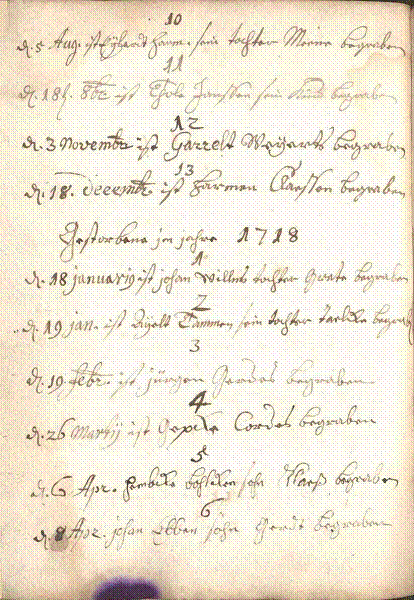 10
d. 5 Aug. ist Eybert Harm. sein tochter Meine begraben
11
d. 18t. 8br ist Janssen sein Kind begraben
12
d. 3 Novembr ist Garrelt Weyerts begraben
13
d. 18. Decembr ist Harmen Claessen begraben
Gestorbene jn jahre 1718
1
d. 18 januarij ist johan Willms tochter Greete begraben
2
d. 19 jan. ist Tammen sein tochter begrab
3
d. 19 febr. ist jürgen Gerdes begraben
4
d. 26 Martij ist Cordes begraben
5
d. 6 Apr. sohn Klaeß begraben
6
d. 8 Apr. johan Ebben sohn Gerdt begraben